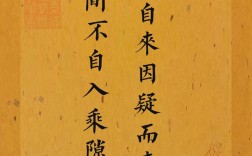 自來因疑而
間不自入乘隙